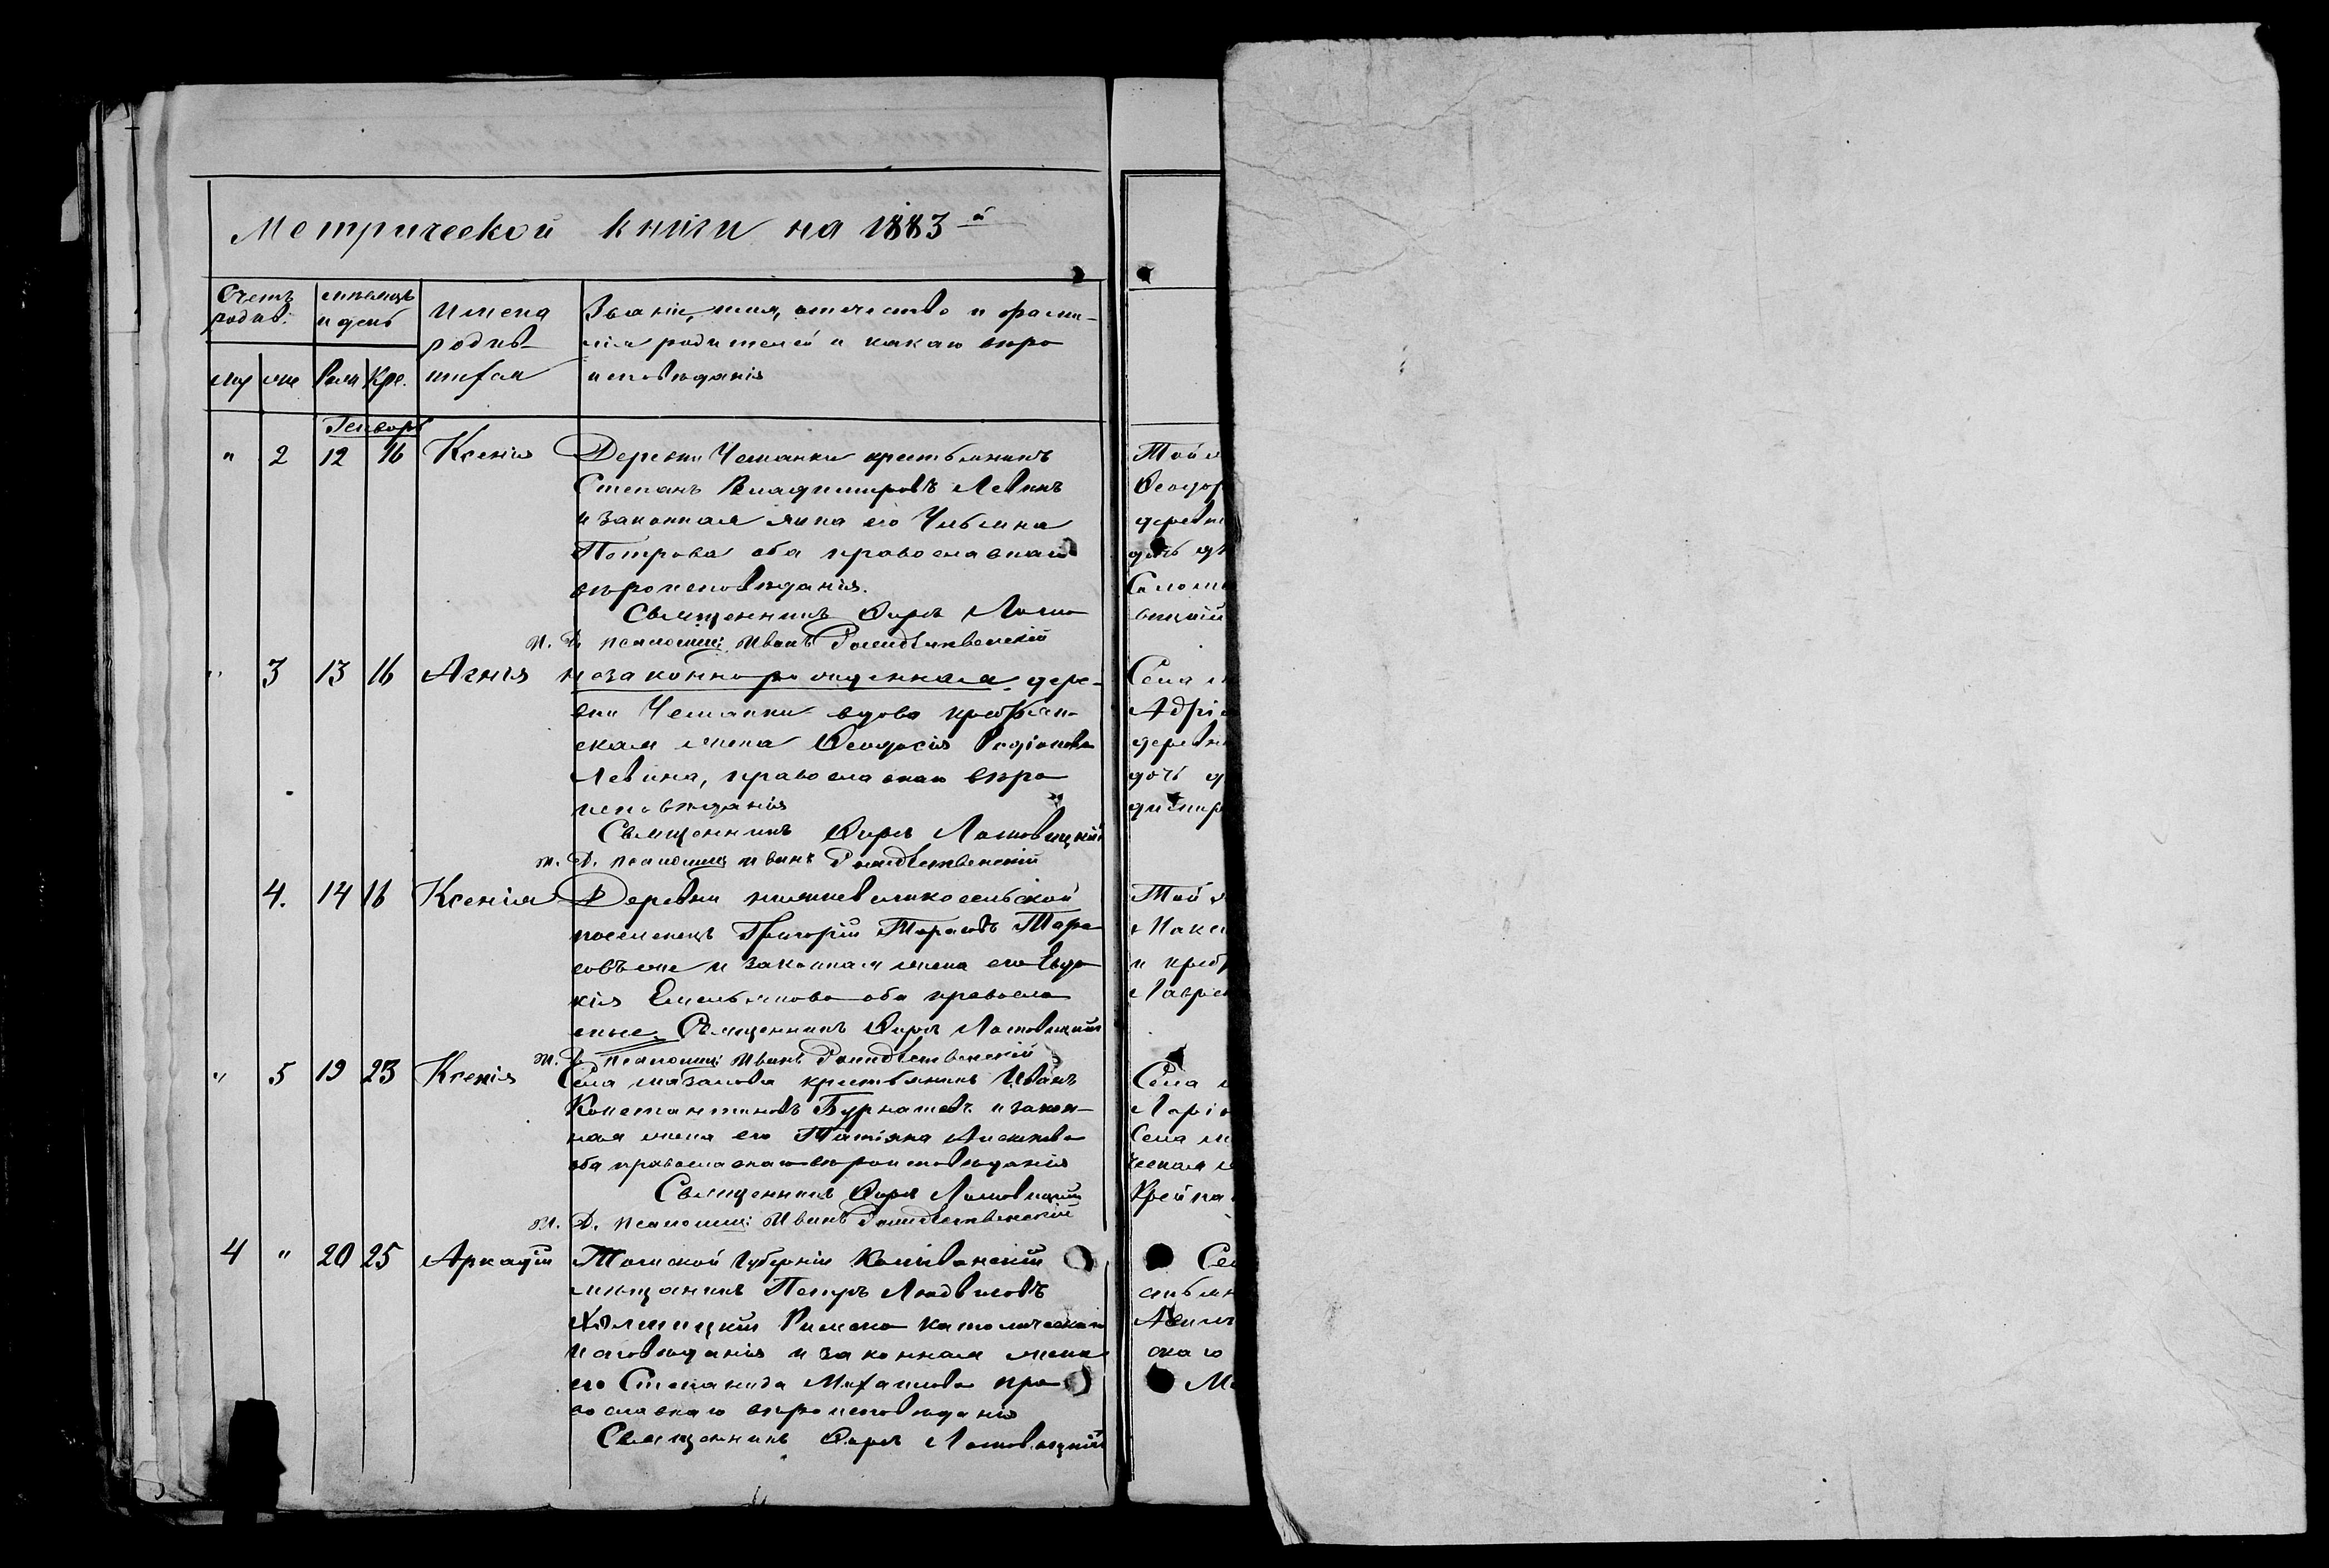 Метрической книги на 1883й
Счетъ родив. мѣсяцъ и день Имена родив- Званіе, имя, отечество и фами-
лія родителей и какаго вѣро
му же Рож Кре. шихся исповѣданія
Генваръ
" 2 12 16 Ксенія Деревни Чеманки крестьянинъ
Степанъ Владимировъ Левинъ
и законная жена его
Петрова оба православнаго
вѣроисповѣданія.
Священникъ
И. Д. псаломщ: Иванъ Рождественскій
" 3 13 16 Агнія незаконнорожденная. дере-
вни Чеманки вдова крестьян-
ская жена Ѳеодосія Родіонова
Левина, православнаго вѣро
исповѣданія
Священникъ
И. Д. псаломщ Иванъ Рождественскій
4. 14 16 Ксенія Деревни
поселенецъ Григорій Тарасовъ Тара
совъ же и законная жена его Евдо
кія Емельянова оба правосла
вные Священникъ
И. Д. псаломщ: Иванъ Рождественскій
" 5 19 23 Ксенія Села крестьянинъ Иванъ
Константиновъ Бурнашевъ и закон-
ная жена его Татіяна
оба православнаго вѣроисповѣданія
Священникъ
И. Д. псаломщ: Иванъ Рождественскій
4 " 20 25 Аркадій Томской Губерніи Колыванскій
мѣщанинъ Петръ Людвиговъ
Римско католическаго
исповѣданія и законная жена
его Степанида Михаилова пра
вославнаго вѣроисповѣданія
Священникъ
Той
Ѳеодор
деревн
дочь
Солом
вицкій
Села
Адрі
деревни
дочь
димир
Той
Макси
и крест
Лавре
Села
Ларіо
Села
ческая
Сел
скаго